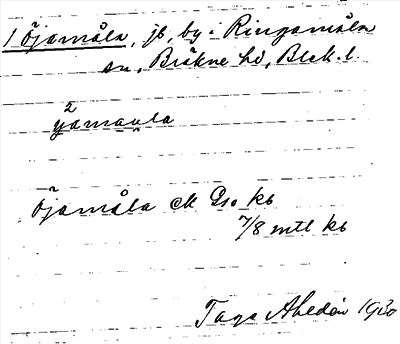 1 Öjamåla, jb, by i Ringamåla
sn, Bräkne hd, Blek. l.
2
yamaula
Öjamåla Gs0 kb
7/8 mtl kb
Tage Ahldén 1930